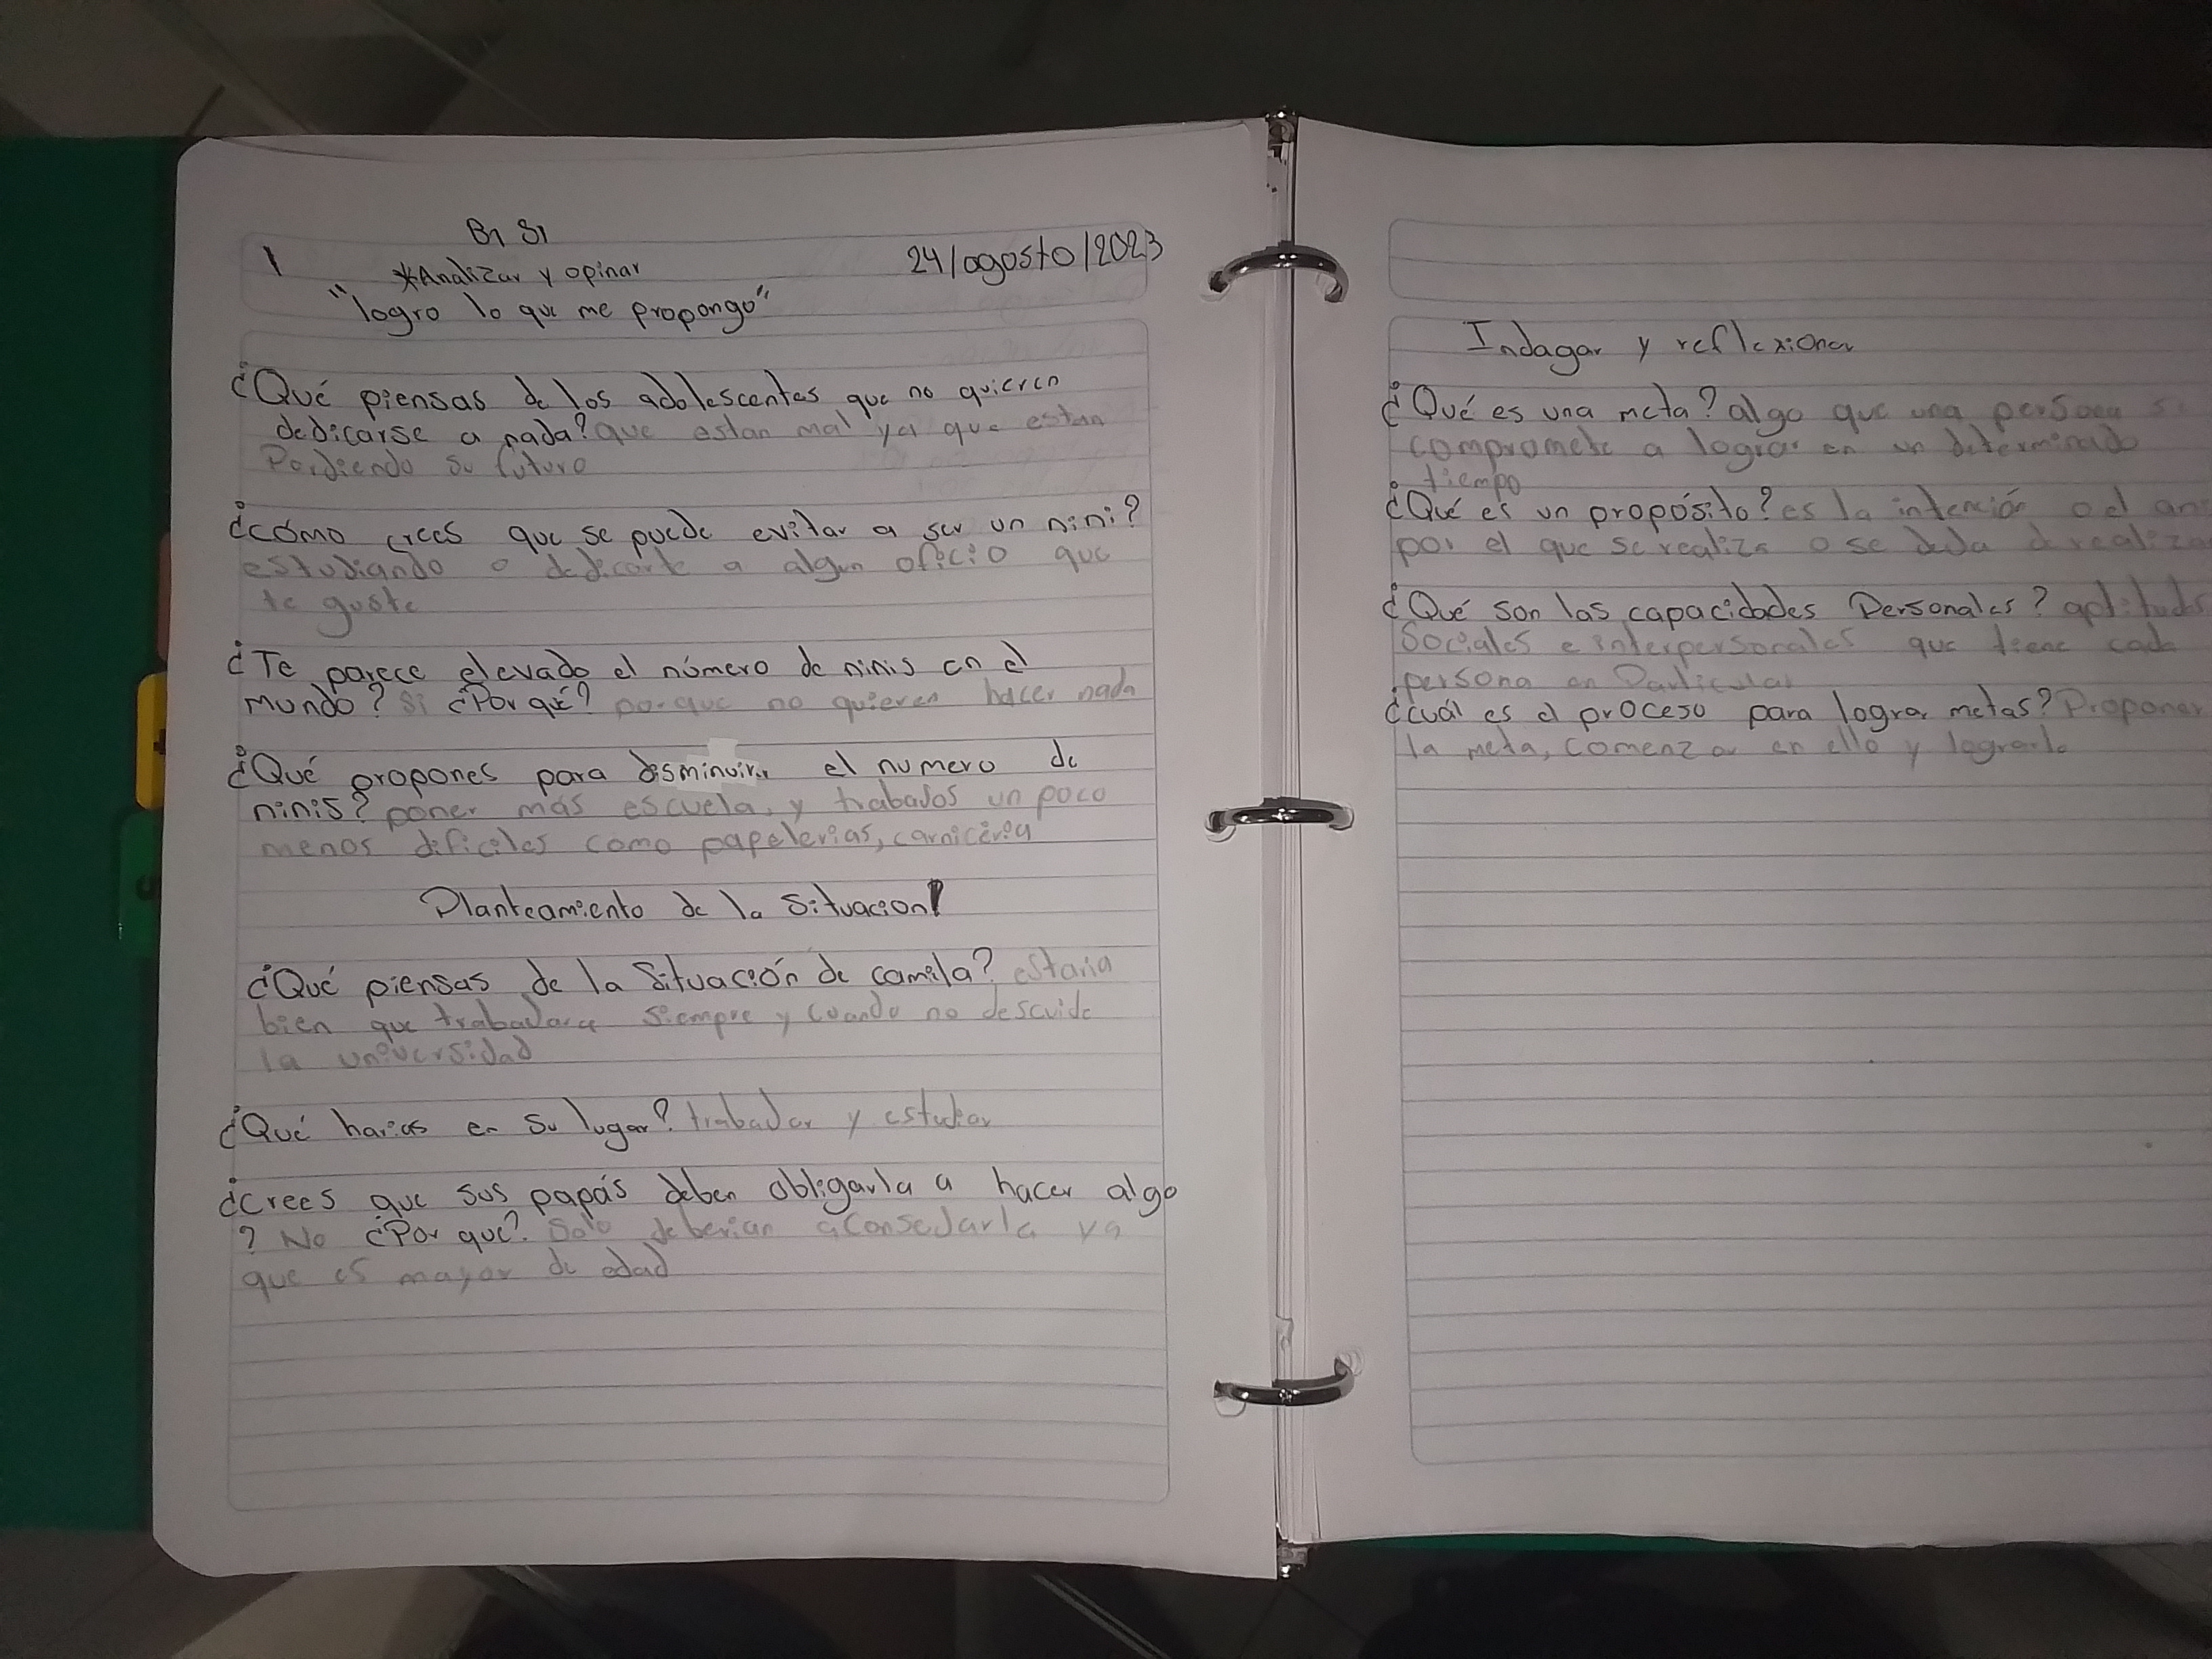 B1 S1
1
*Analizar y opinar
24/agosto/2023
"logro lo que me propongo"
¿Qué piensas de los adolescentes que no quieren
dedicarse a nada? que estan mal ya que estan
Perdiendo su futuro
¿cómo crees que se puede evitar a ser un nini?
estudiando o dedicarte a algun oficio que
te guste
¿Te parece elevado el número de ninis en el
mundo? Si ¿Por qué? porque no quieren hacer nada
¿Qué propones para disminuir el numero de
ninis? poner más escuela, y trabaJos un poco
menos dificiles como papelerias, carniceria
Planteamiento de la Situacion
¿Qué piensas de la Situación de camila? estaria
bien que trabaJara siempre y cuando no descuide
la universidad
¿Qué harias en su lugar? trabaJar y estudiar
¿Crees que sus papás deben obligarla a hacer algo
? No ¿Por que? Solo deberian aconseJarla ya
que es mayor de edad
Indagar y reflexionar
¿Qué es una meta? algo que una persona
compromete a lograr en un determinado
tiempo
¿Qué es un propósito? es la intención
por el que se realiza o se
¿Qué son las capacidades Personales? aptitudes
Sociales e interpersonales que tiene cada
persona en Particular
¿cuál es el proceso para lograr metas? Proponer
la meta, comenzar en ello y lograrlo